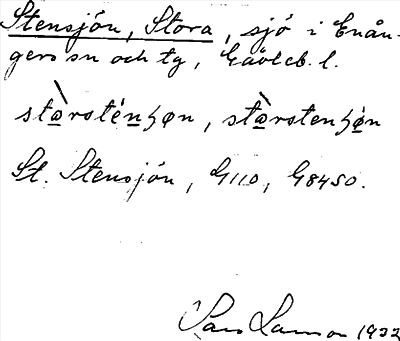 Stensjön, Stora, sjö i Enån-
gers sn och tg, Gävleb. l.
stɷ̀rsténʒøn, stɷ̀rstenʒǿn
St. Stensjön, G110, G8450.
1932